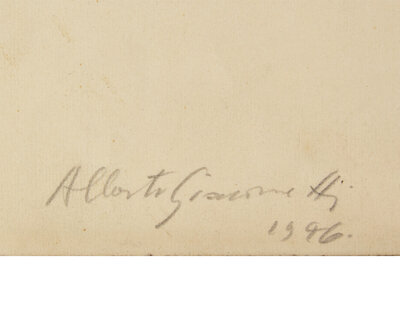 Alberto Giacometti
1946.